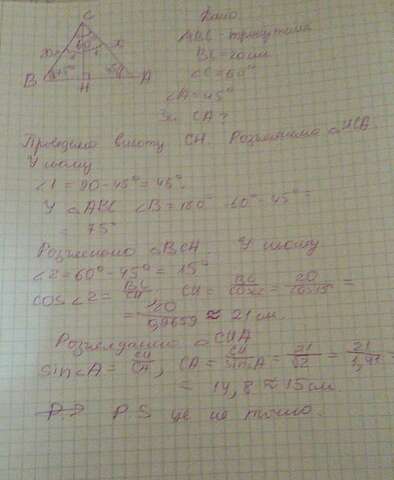 C
60°
B
45°
H
A
Дано
ABC - трикутник
BC = 20 см
∠C = 60°
∠A = 45°
Зн. CA?
Проведемо висоту CH. Розглянемо △HCA
У ньому
∠1 = 90 - 45° = 45°.
У △ABC ∠B = 180° - 60° - 45° =
= 75°
Розглянемо △BCH. У ньому
∠2 = 60° - 45° = 15°
cos∠2 = BC/CH. CH = BC/cos∠2 = 20/cos15° =
= 20/0,9659 ≈ 21 см.
Розглянемо △CHA
sin∠A = CH/CA, CA = CH/sin∠A = 21/√2 = 21/1,41
= 14,8 ≈ 15 см
P.S P.S це не точно.